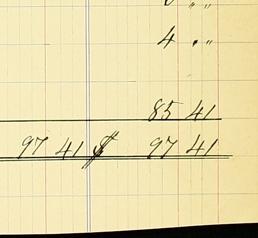 4 " "
85 41
97 41 $ 97 41